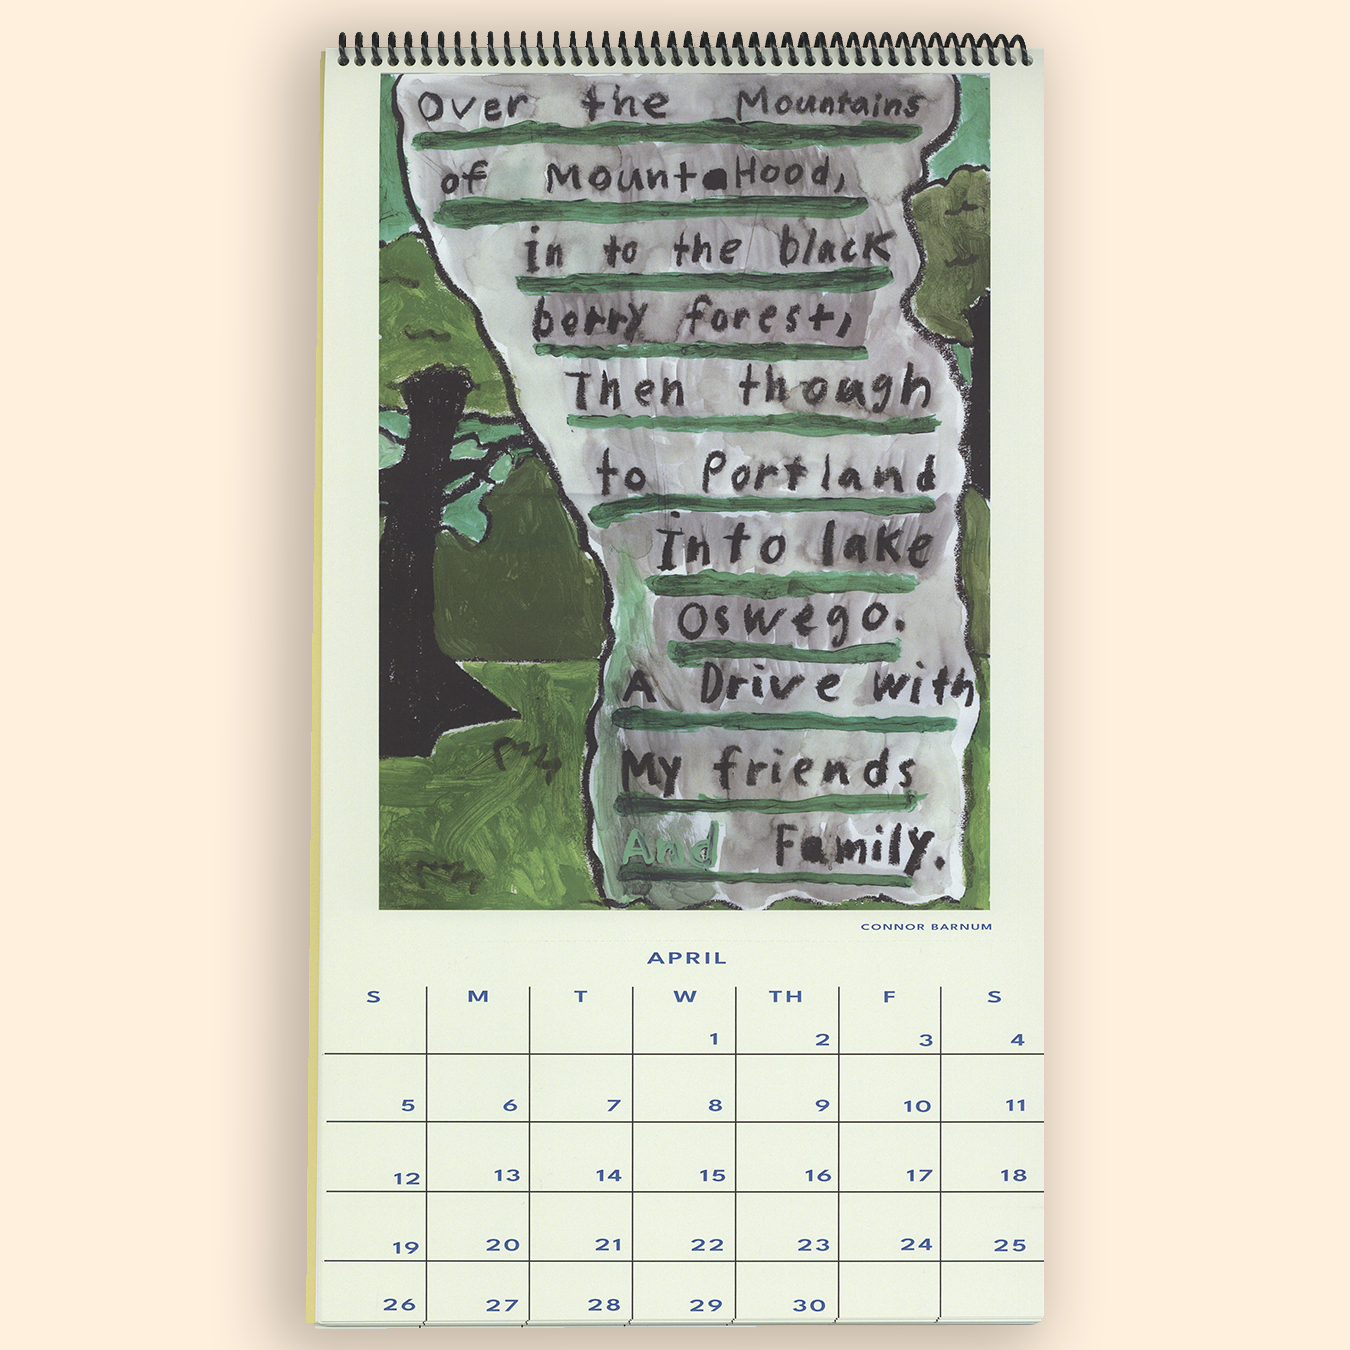 Over the Mountains
of Mount Hood,
in to the black
berry forest,
Then though
to Portland
Into lake
Oswego.
A Drive with
My friends
And Family.
CONNOR BARNUM
APRIL
S M T W TH F S
1 2 3 4
5 6 7 8 9 10 11
12 13 14 15 16 17 18
19 20 21 22 23 24 25
26 27 28 29 30